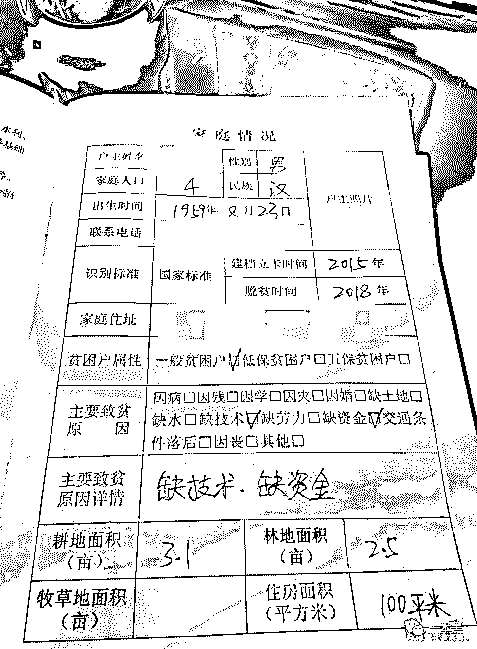 家庭情况
户主姓名 性别 男
家庭人口 4 民族 汉 户主照片
出生时间 1959年 8月23日
联系电话
识别标准 国家标准 建档立卡时间 2015年
脱贫时间 2018年
家庭住址
贫困户属性 一般贫困户☑低保贫困户□五保贫困户□
主要致贫原因 因病□因残□因学□因灾□因婚□缺土地□
缺水□缺技术☑缺劳力□缺资金☑交通条
件落后□因丧□其他□
主要致贫原因详情 缺技术、缺资金
耕地面积(亩) 3.1 林地面积(亩) 2.5
牧草地面积(亩) 住房面积(平方米) 100平米